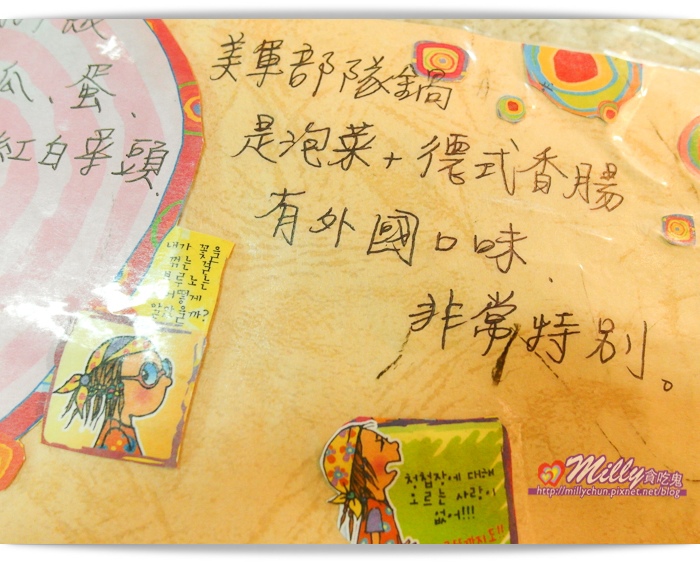 瓜、蛋、
紅白
頭
美軍部隊鍋
是泡菜+德式香腸
有外國口味、
非常特別。
내가 꽃을
꺾는 걸
부르노는
어떻게
알았을까?
청첩장에 대해
오르는 사람이
없어!!!
Milly貪吃鬼
http://millychun.pixnet.net/blog